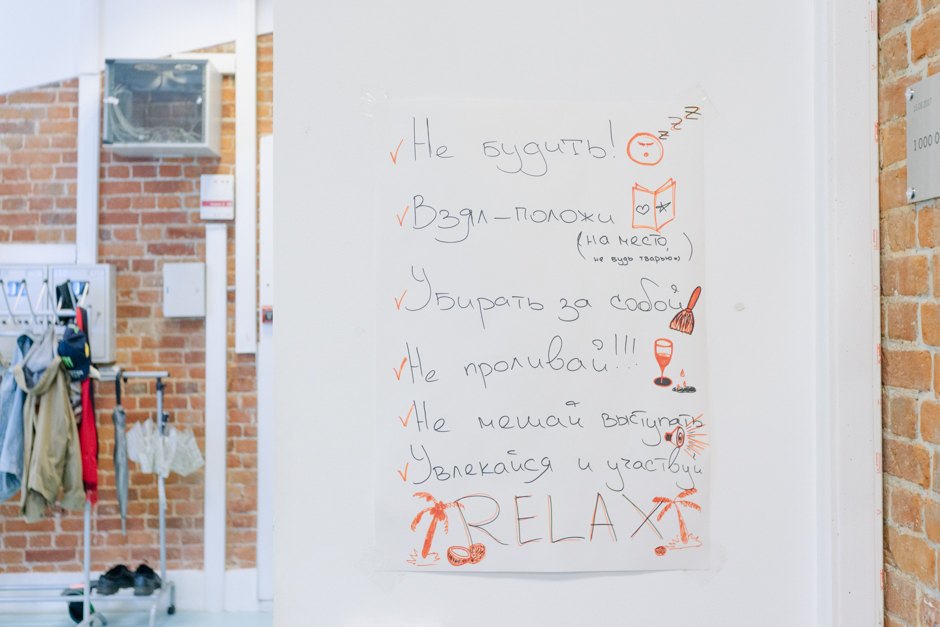 z z z
Не будить!
Взял-положи
(на место,
не будь тварью:))
Убирать за собой
Не проливай!!!
Не мешай выступать
Увлекайся и участвуй
RELAX
1 000 0